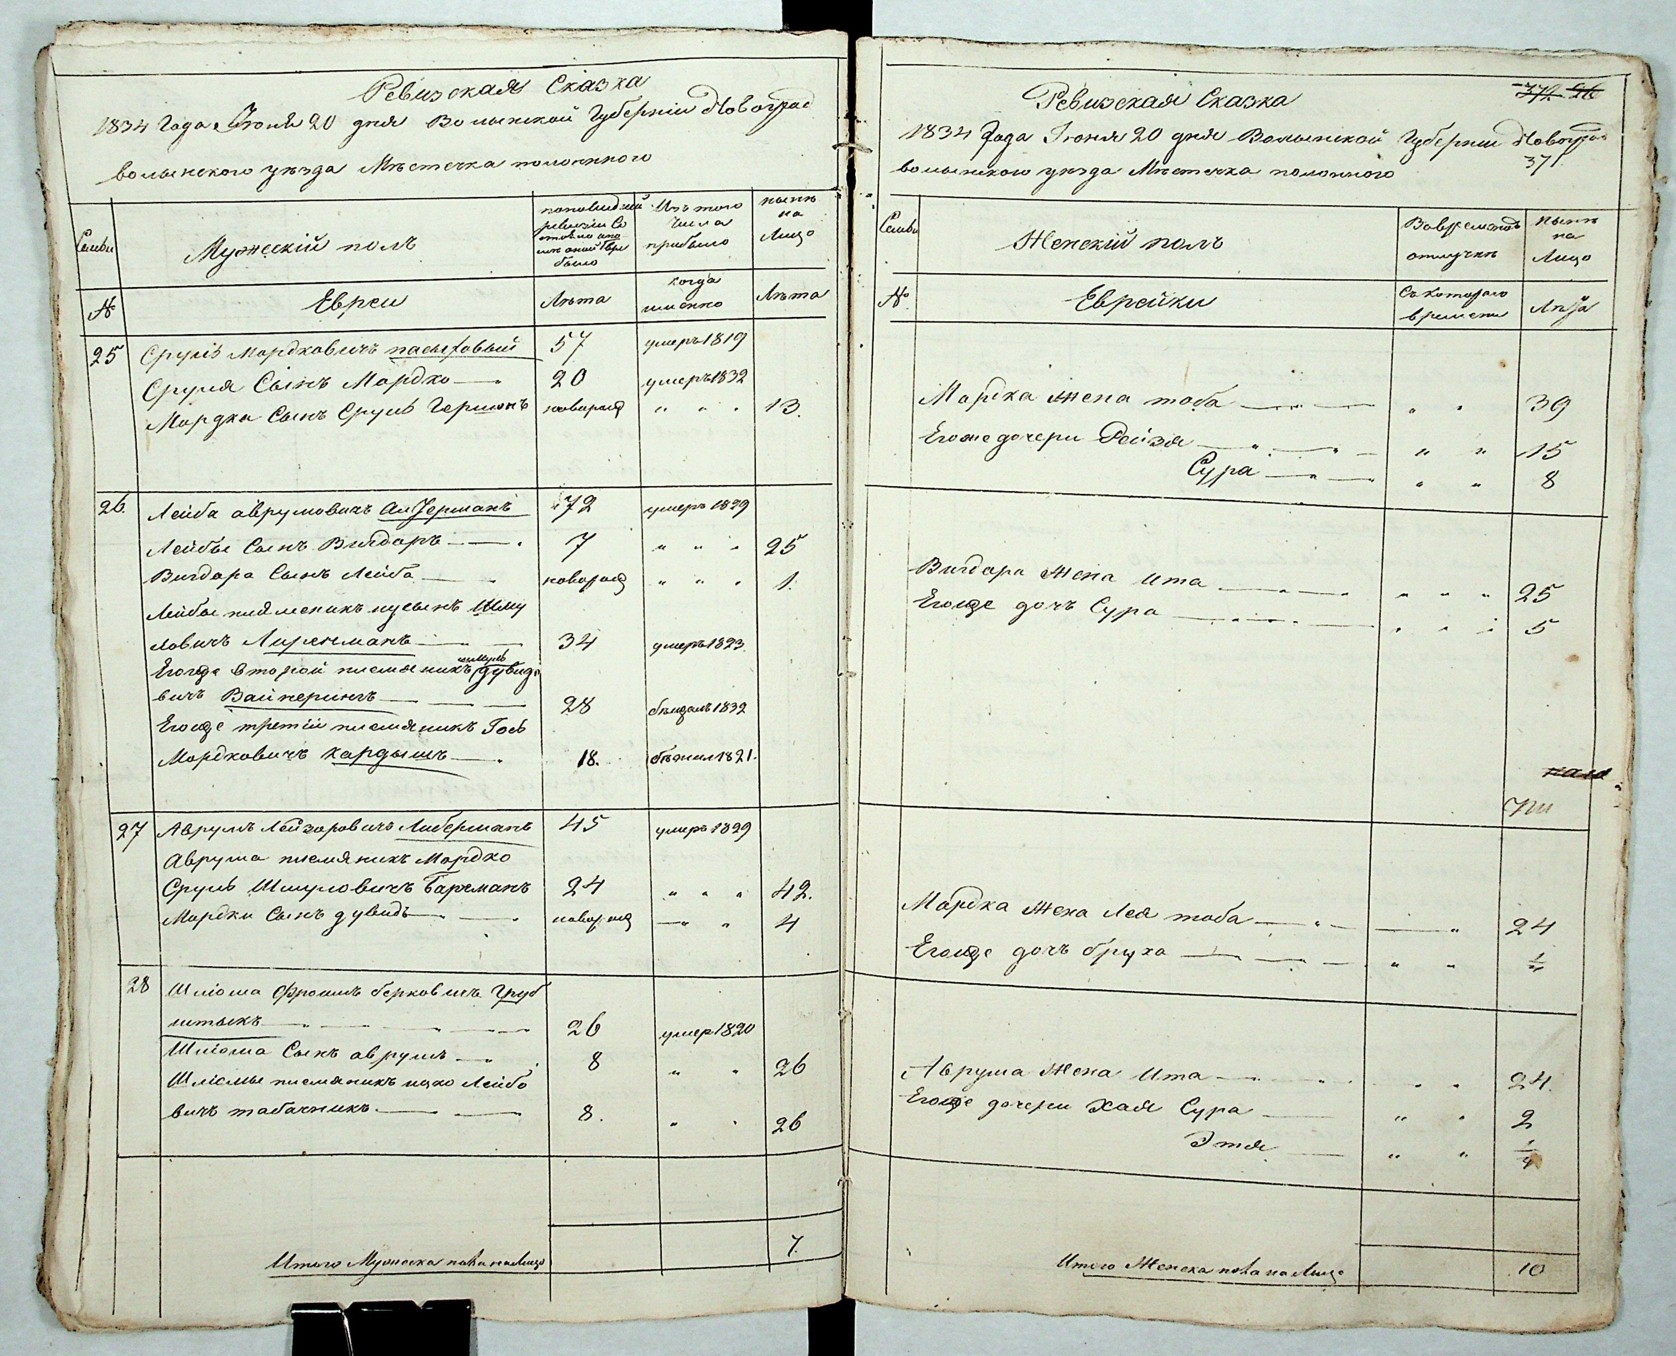 Ревизская Сказка
1834 Года Июня 20 дня Волынской Губернии Новоград
волынского уезда Местечка полонного
Семьи
Мужеский полъ
Изъ того
числа
прибыло
ныне
на
Лицо
№
Евреи
Лѣта
когда
именно
Лѣта
25 Сруль Мордковичъ 57 умеръ 1819
Сруля Сынъ Мордко 20 умеръ 1832
Мордка Сынъ Сруль Гершонъ новорож " " " 13.
26. Лейба аврумовичъ Алтерманъ 72 умеръ 1829
Лейбы Сынъ Вигдоръ 7 " " " 25
Вигдора Сынъ Лейба новорож " " " 1.
Лейбы племеникъ нусынъ Шму
ловичъ 34 умеръ 1823
Егожъ второй племяникъ шмуль дувидо
вичъ 28 1832
Егоже третій племяникъ Гось
Мордковичъ Кардышъ 18. бежил 1821.
27 Аврумъ Лейзоровичъ Либерманъ 45 умеръ 1829
Аврума племяникъ Мордко
Сруль Шмуловичъ Бакманъ 24 " " " 42.
Мордки Сынъ дувидъ новорож " " 4
28 Шліома Фроимъ берковичъ Груб
штыкъ 26 умер 1820
Шліома Сынъ аврумъ 8 " " 26
Шліомы племяникъ ицко Лейбо
вичъ табачникъ 8. " " 26
7.
Итого Мужеска пола на Лицо
Ревизская Сказка
1834 Года Июня 20 дня Волынской Губернии Новоград
371
волынского уезда Местечка полонного
Семьи
Женскій полъ
Во временной
отлучке
ныне
на
Лицо
№
Еврейки
Съ которого
времени
Лѣта
Мордка Жена тоба " " 39
Егоже дочери Рейзя " " 15
Сура " " 8
Вигдора Жена Ита " " " 25
Егоже дочъ Сура " " " 5
Мордка Жена Лея тоба " 24
Егоже дочъ бруха " "
Аврума Жена Ита " " 24.
Егоже дочери Хая Сура " " 2
Этя " "
Итого Женска пола на Лице 10